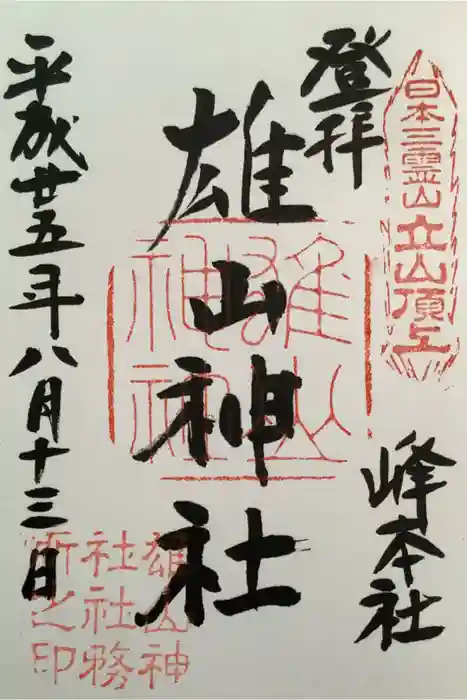 日本三霊山立山頂上
登拝
峰本社
雄山神社
雄山神社
平成廿五年八月十三日
雄山神
社社務
所之印